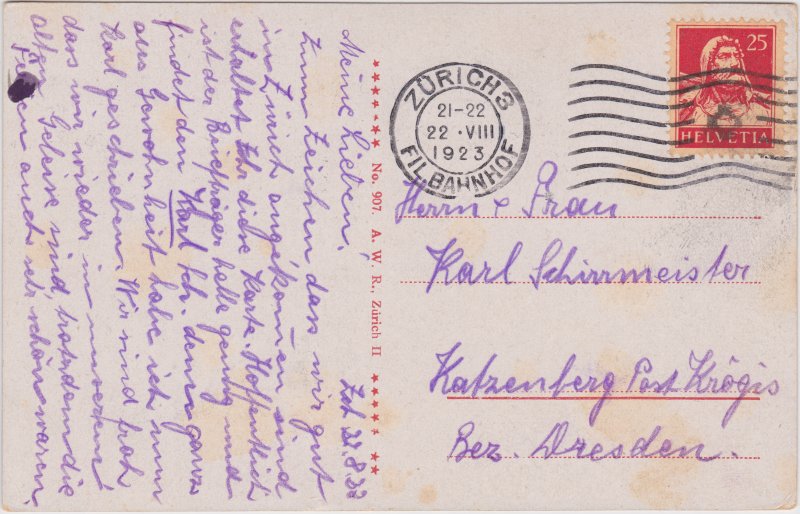 Meine Lieben! Zch 22.8.23
Zum Zeichen dass wir gut
in Zürich angekom̄en sind
erhaltet Ihr diese Karte. Hoffentlich
ist der Briefträger helle genug und
findet den Karl Sch. denn ganz
aus Gewohnheit habe ich nun
Karl geschrieben. Wir sind froh
dass wir wieder in unserem
alten Geleise sind, trotzdem die
Ferien auch sehr schön waren.
No. 907. A. W. R., Zürich II
ZÜRICH 3
21-22
22 · VIII
1923
FIL. BAHNHOF
25
HELVETIA
Herrn & Frau
Karl Schirrmeister
Katzenberg Post Krögis
Bez. Dresden.